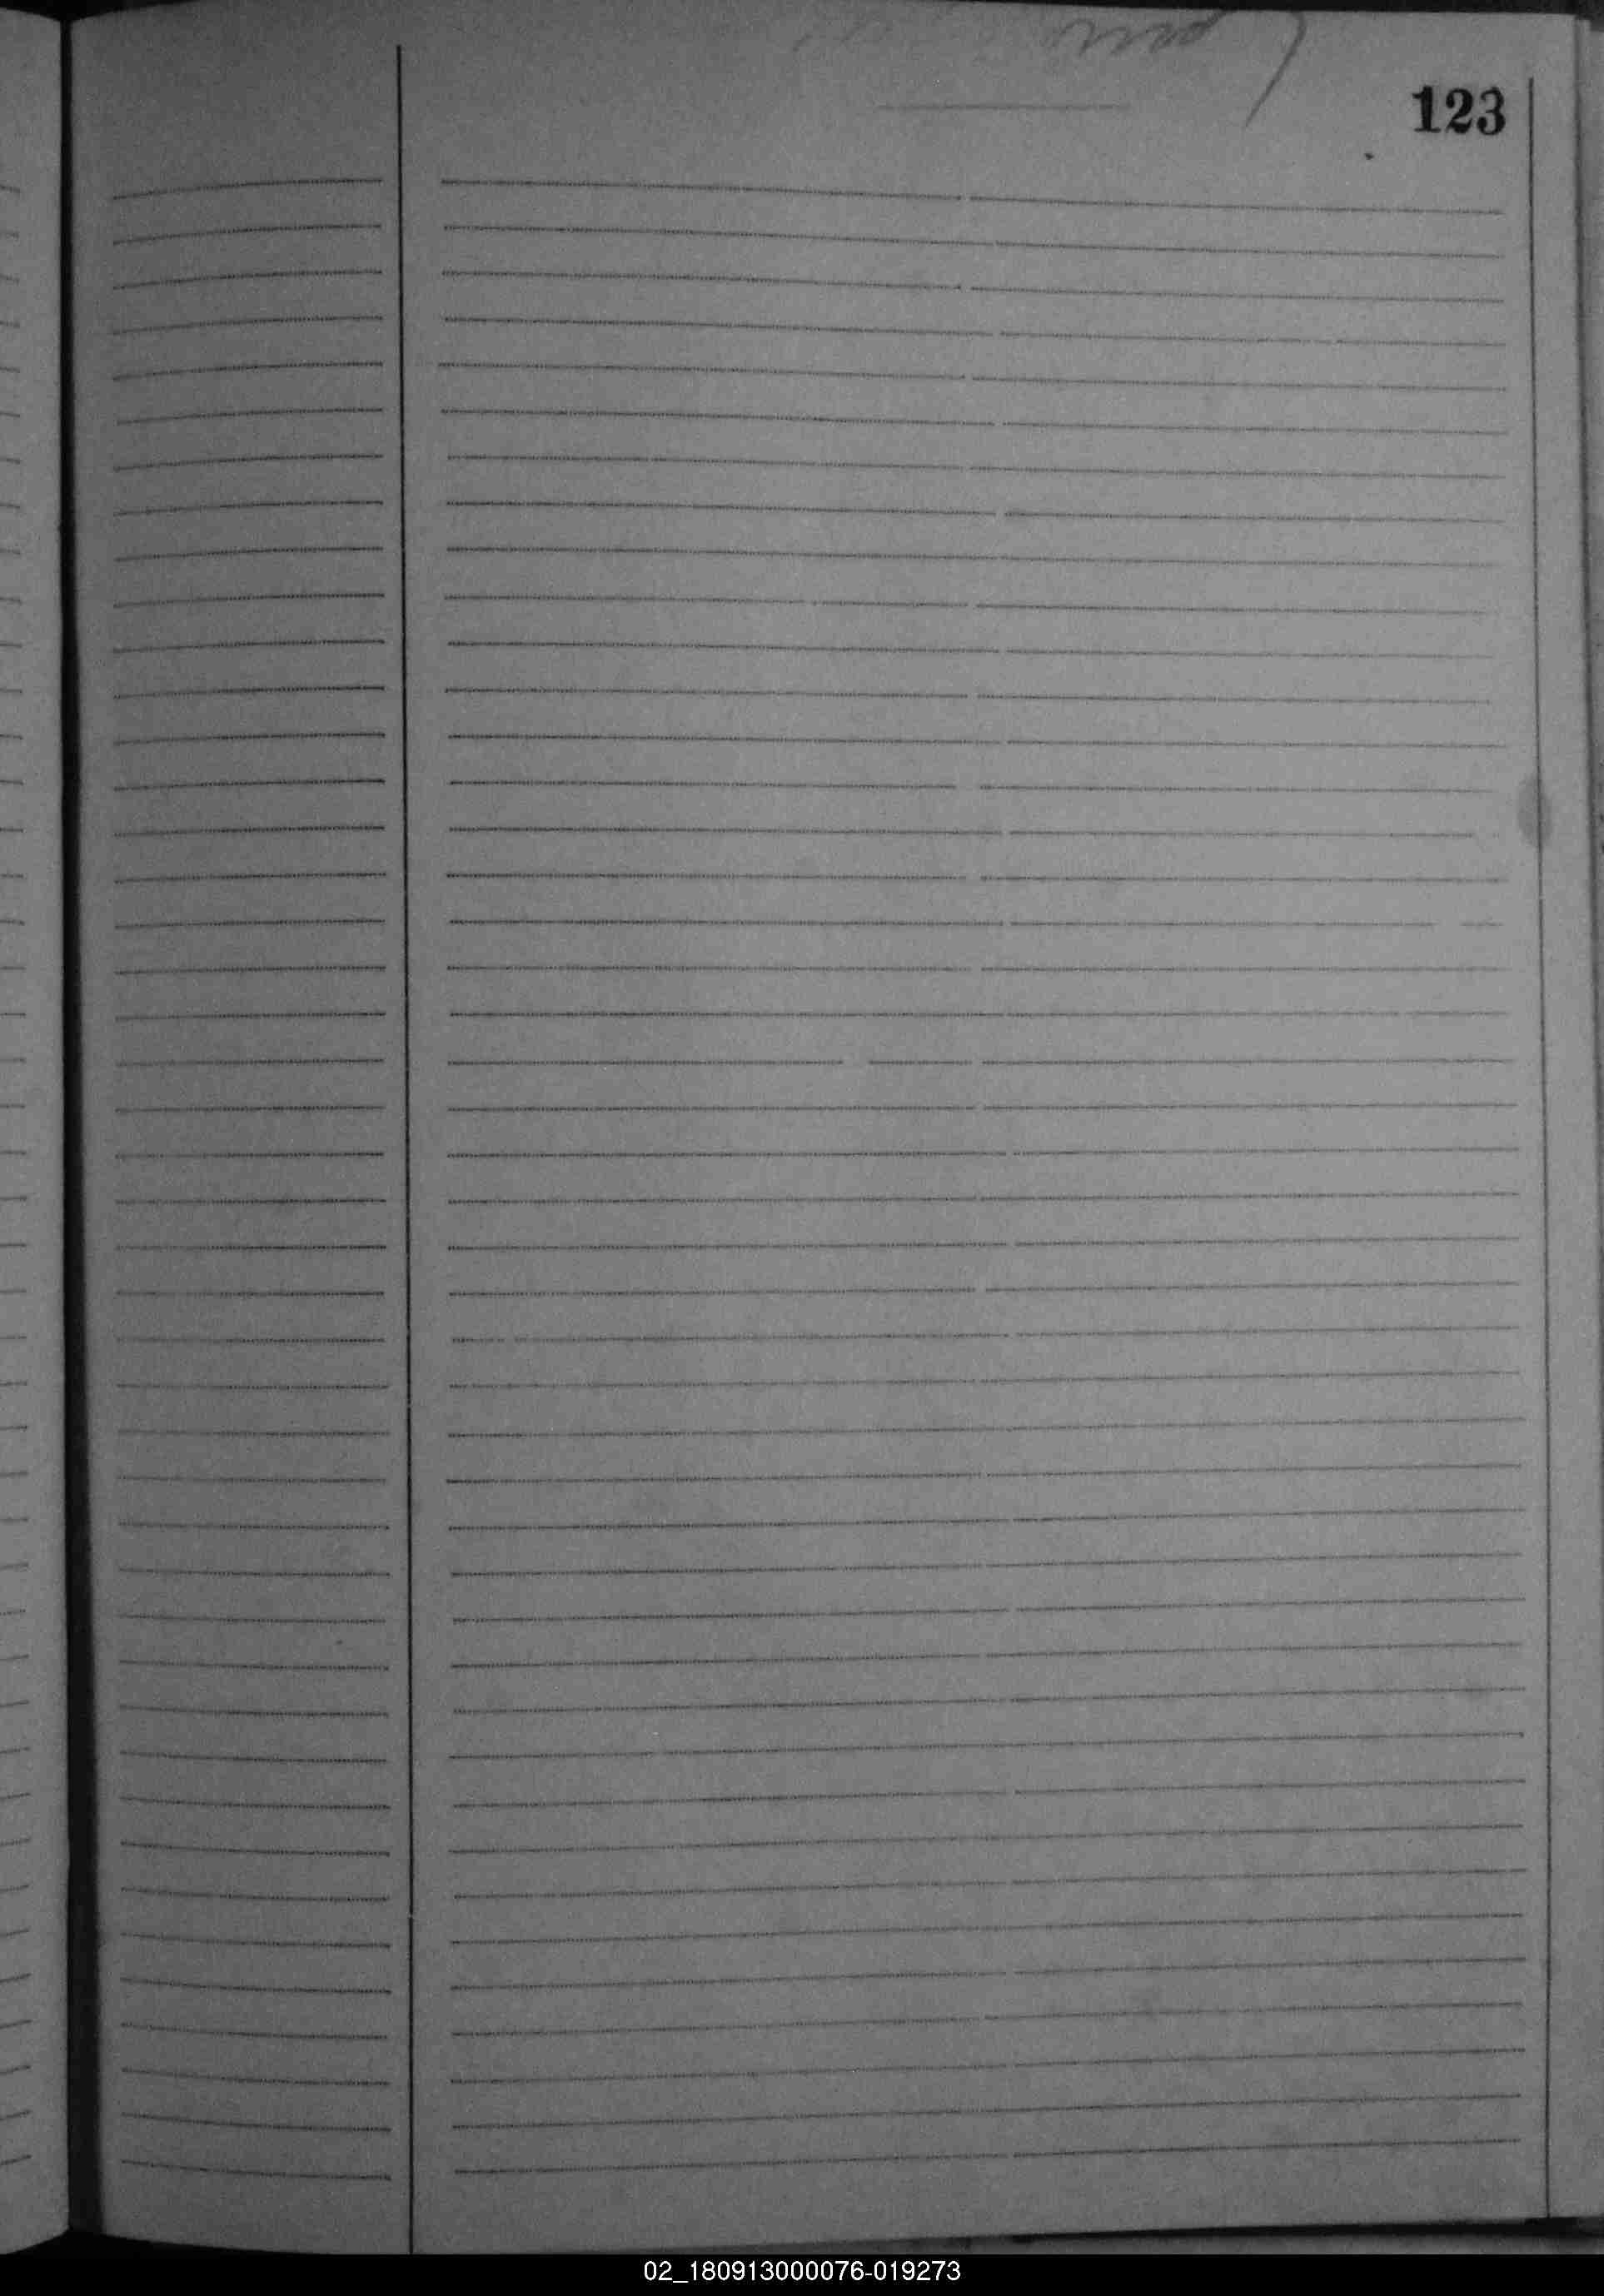 123
02_180913000076-019273